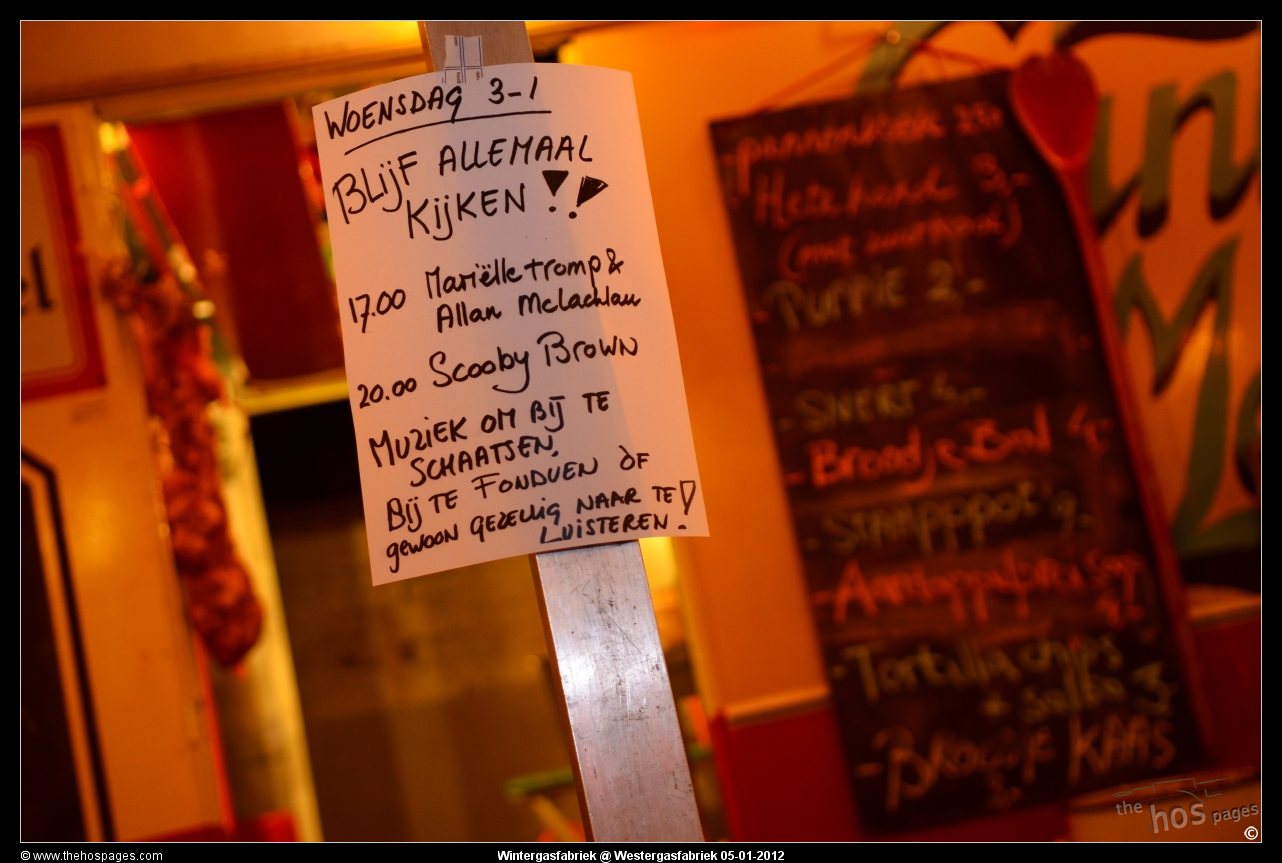 WOENSDAG 3-1
BLIJF ALLEMAAL
KIJKEN !!
17.00 Mariëlle tromp &
Allan McLachlan
20.00 Scooby Brown
MUZIEK OM BIJ TE
SCHAATSEN.
BIJ TE FONDUEN ÒF
gewoon gezellig NAAR TE
LUISTEREN!
- pannenkoek 2,50
3,-
- PUPPIE 2,-
- SNERT 4,-
- Broodje Bal 4,-
- STAMPPPOT 9,-
- Aardappel
- Tortilla chips
+ salsa 3,-
- BROODJE KAAS
3,-
the hos pages
©
© www.thehospages.com
Wintergasfabriek @ Westergasfabriek 05-01-2012